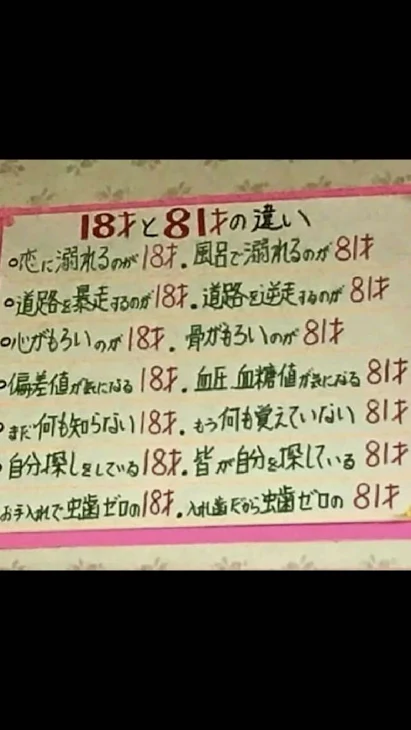 18才と81才の違い
○恋に溺れるのが18才．風呂で溺れるのが81才
○道路を暴走するのが18才．道路を逆走するのが81才
○心がもろいのが18才．骨がもろいのが81才
○偏差値が気になる18才．血圧、血糖値が気になる81才
○まだ何も知らない18才．もう何も覚えていない81才
○自分探しをしている18才．皆が自分を探している81才
お手入れで虫歯ゼロの18才．入れ歯だから虫歯ゼロの81才